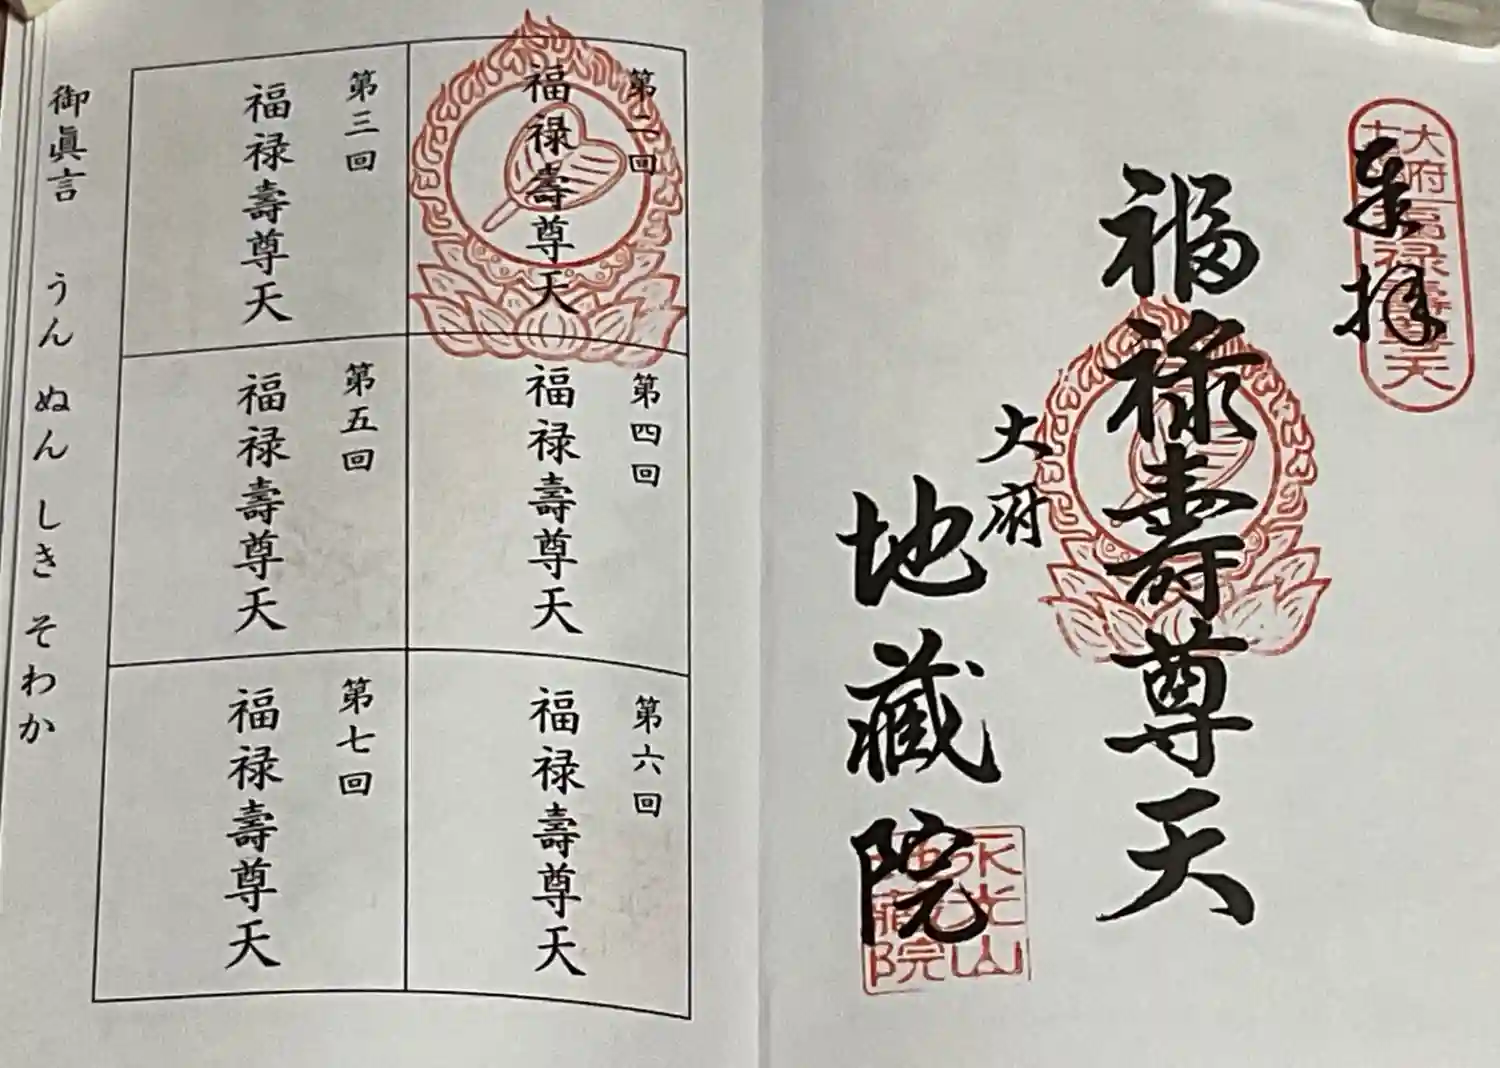 奉拝
大府
七福
福禄壽尊天
福禄壽尊天
大府
地蔵院
永光山
地蔵院
第二回
福禄壽尊天
第三回
福禄壽尊天
第四回
福禄壽尊天
第五回
福禄壽尊天
第六回
福禄壽尊天
第七回
福禄壽尊天
御眞言 うん ぬん しき そわか